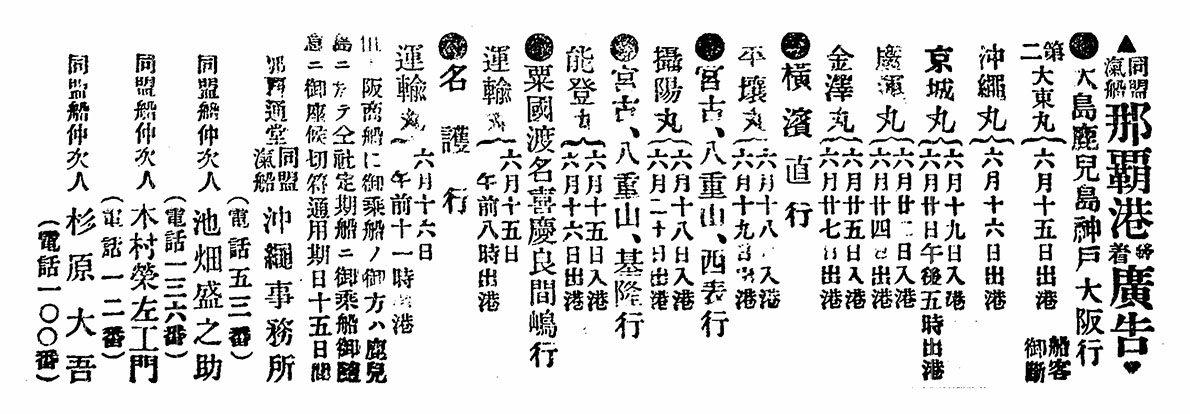 ▲同盟汽船那覇港發着廣告
●大島鹿兒島神戸大阪行
第二大東丸(六月十五日出港 船客御斷
沖繩丸(六月十六日出港
京城丸 六月十九日入港 六月廿日午後五時出港
慶運丸 六月廿二日入港 六月廿四日出港
金澤丸 六月廿五日入港 六月廿七日出港
●横濱直行
平壤丸 六月十八日入港 六月十九日出港
●宮古、八重山、西表行
攝陽丸 六月十八日入港 六月二十日出港
●宮古、八重山、基隆行
能登丸 六月十五日入港 六月十六日出港
●粟國渡名喜慶良間嶋行
運輸丸 六月十五日 午前八時出港
●名護行
運輸丸 六月十六日 午前十一時出港
但阪商船に御乘船ノ御方ハ鹿兒
島ニ於テ仝社定期船ニ御乘船御隨
意ニ御座候切符通用期日十五日間
那覇通堂 同盟汽船 沖繩事務所
(電話五三番)
同盟船仲次人 池畑盛之助
(電話一三六番)
同盟船仲次人 木村榮左工門
(電話一二番)
同盟船仲次人 杉原大吾
(電話一〇〇番)